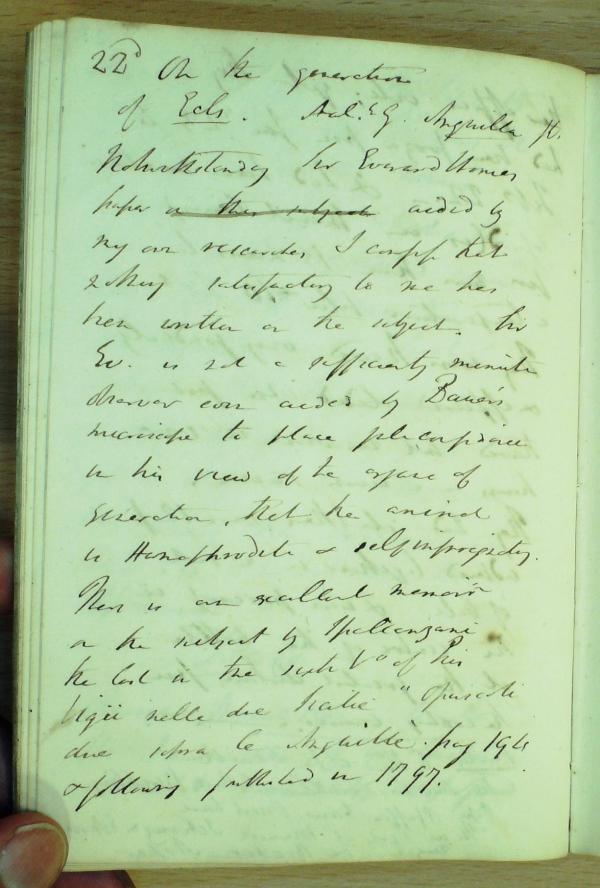 22d On the generation
of Eels. Nat. Hy. Anguilla
Notwithstanding Sir Everard Homes
paper on this subject aided by
my own researches I confess that
nothing satisfactory to me has
been written on the subject. Sir
Ev. is not a sufficiently minute
observer even aided by Bauer's
microscope to place full confidence
in his view of the organs of
generation, that the animal
is Hermaphrodite & self impregnating.
There is an excellent memoir
on the subject by Spallanzani
the last in the sixth Vo of his
Viggi nelle due Sicilie " Opuscoli
due sopra le Anguille. pag 194
& following published in 1797.